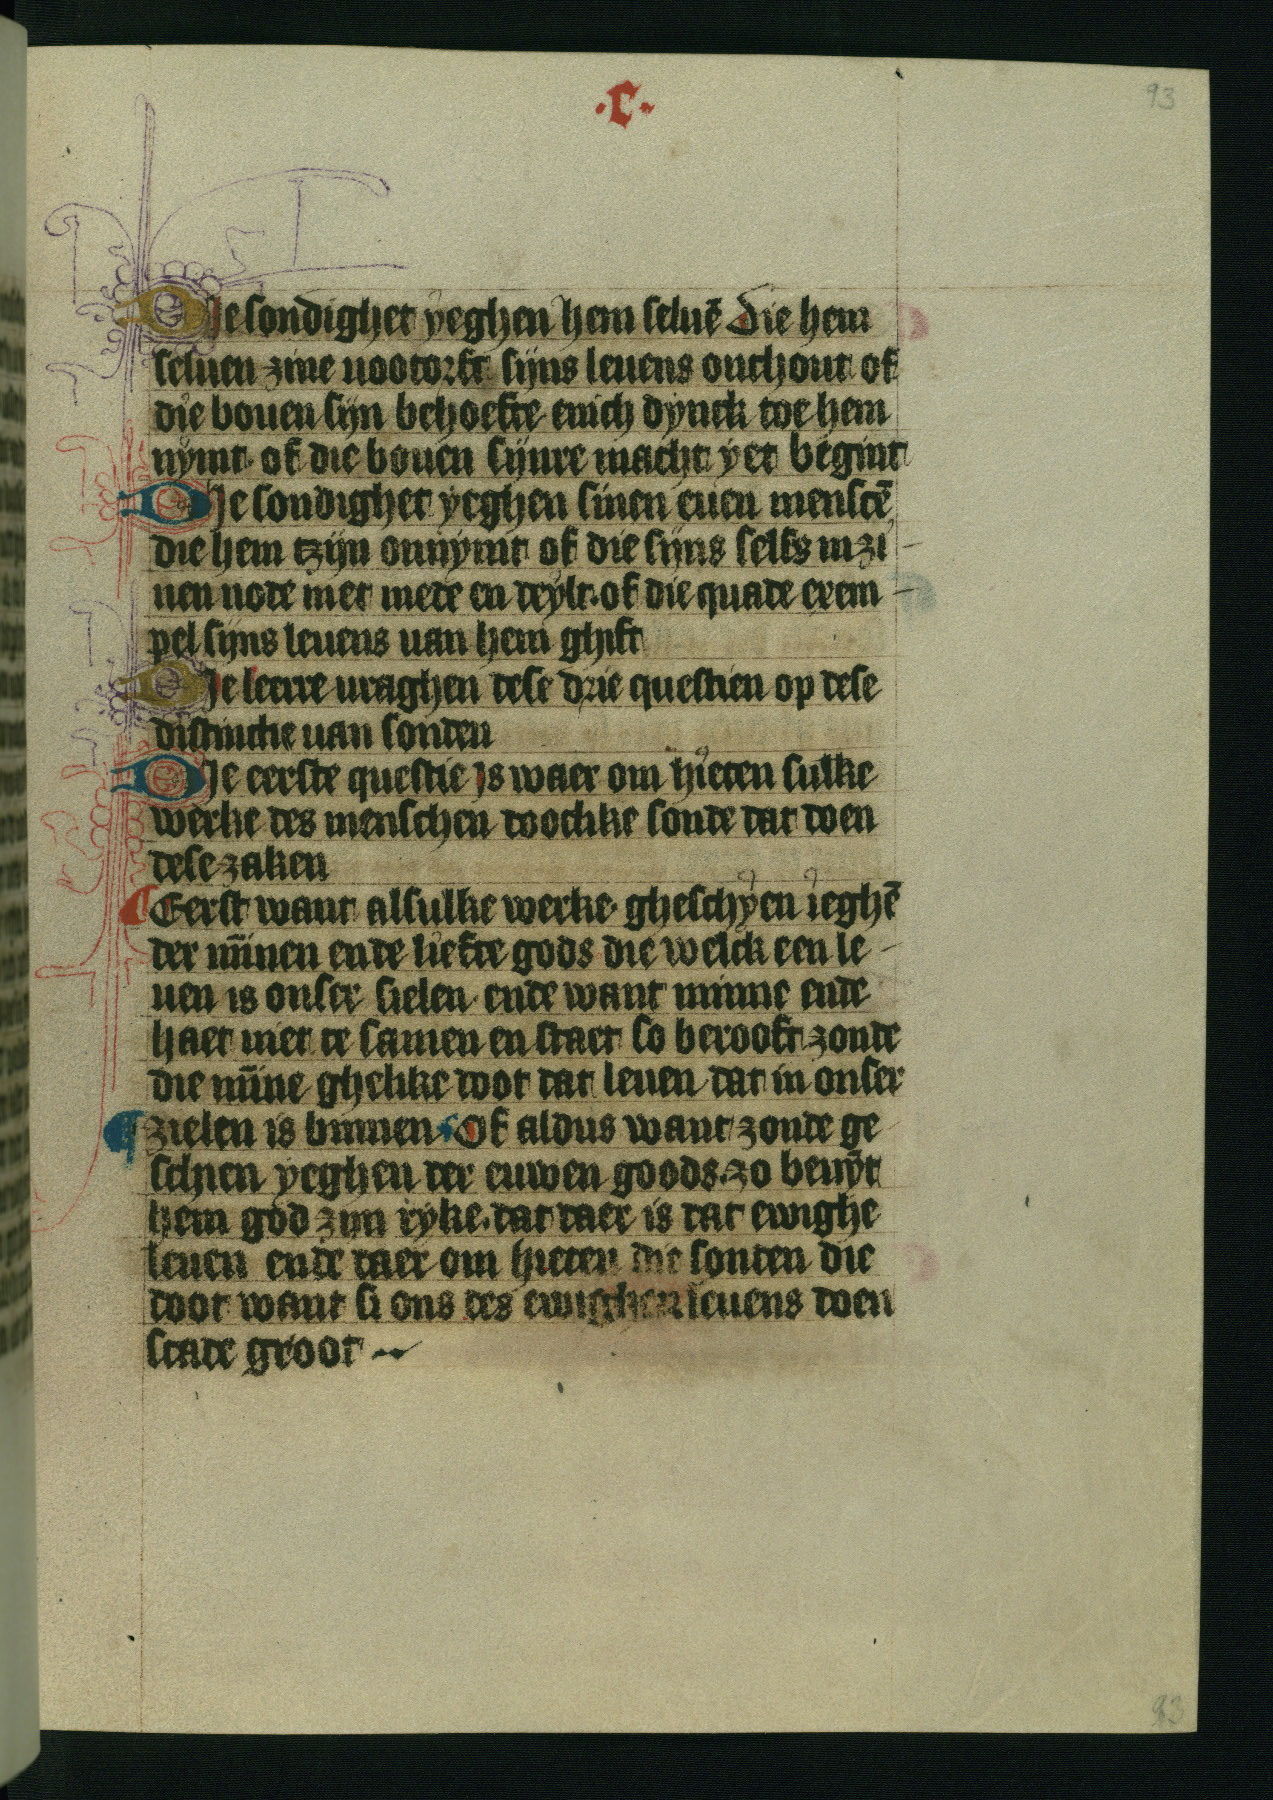 ·C·
93
Die sondighet yeghen hem seluē Die hem
seluen zine nootorft sijns leuens onthout of
die bouen sijn behoefte enich dynck toe hem
nymt· of die bouen sijnre macht yet begint
Die sondighet yeghen sinen euen menscē
die hem tzijn onnymt of die sijns selfs in zi-
nen node niet mede en deylt·of die quade exem-
pel sijns leuens uan hem ghift
Die leerre uraghen dese drie questien op dese
distinctie uan sonden
Die eerste questie is waer om hieten sulke
werke des menschen doetlike sonde dat doen
dese zaken
Eerst want alsulke werke· gheschyen ieghē
der mīnen ende liefte gods die welck een le-
uen is onser sielen· ende want minne ende
haet niet te samen en staet so berooft zonde
die mīne ghelike doot dat leuen dat in onser
zielen is binnen Of aldus want zonde ge
schien yeghen der euwen goods·zo benỹt
hem god zijn ryke·dat daer is dat ewighe
leuen ende daer om hieten die sonden die
doot want si ons des ewighen leuens doen
scade groot
93